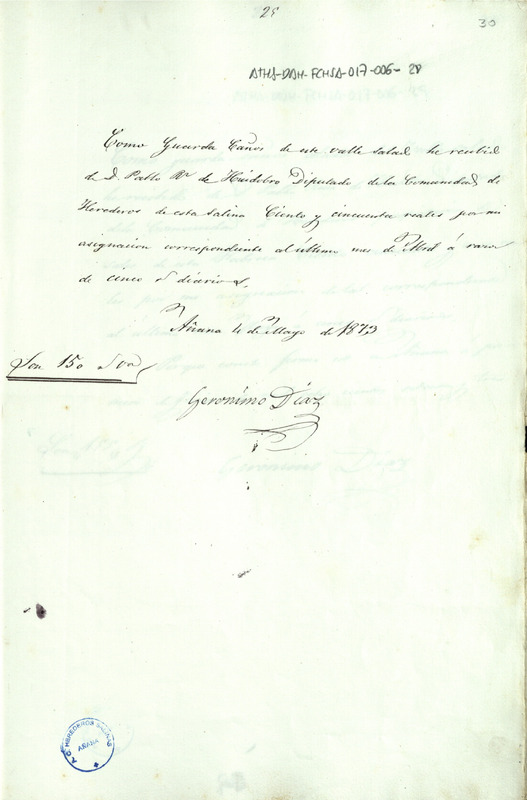 29
30
ATHA-DAH-FCHSA-017-006-29
Como Guarda Caños de este valle salado he recibido
de D. Pablo Rz. de Huidobro Diputado de la Comunedad de
Herederos de esta Salina Ciento y cincuenta reales por mi
asignacion correspondiente al último mes de Abril á razon
de cinco diarios.
Añana 4 de Mayo de 1873
Son 150
Geronimo Diaz
HEREDEROS SALINAS
AÑANA